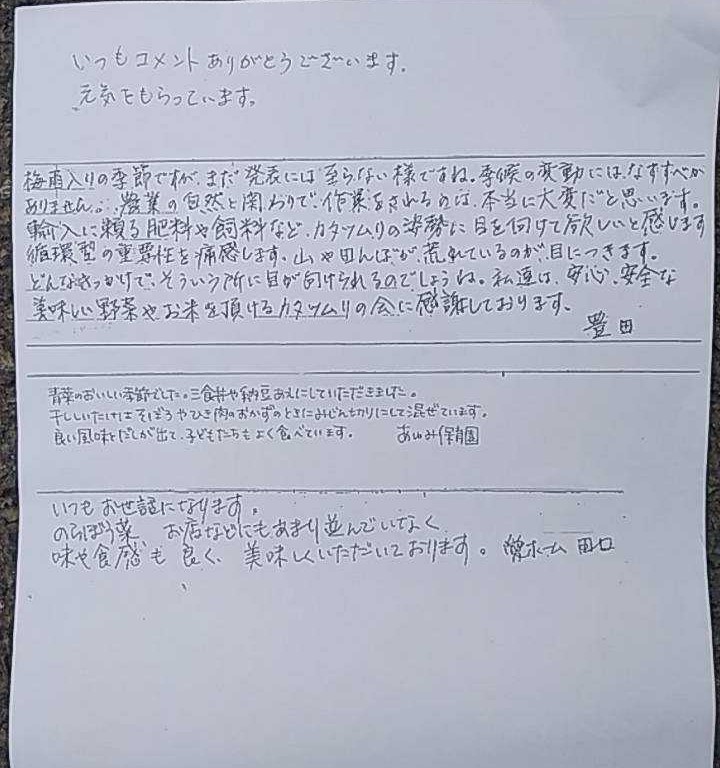 いつもコメントありがとうございます。
元気をもらっています。
梅雨入りの季節ですが、まだ発表には至らない様ですね。季候の変動には、なすすべが
ありません。農業の自然と関わりで、作業をされるのは、本当に大変だと思います。
輸入に頼る肥料や飼料など、カタツムリの姿勢に目を向けて欲しいと感じます
循環型の重要性を痛感します。山や田んぼが、荒れているのが、目につきます。
どんなきっかけで、そういう所に目が向けられるのでしょうね。私達は、安心、安全な
美味しい野菜やお米を頂けるカタツムリの会に感謝しております。
豊田
青菜のおいしい季節でした。三食丼や納豆あえにしていただきました。
干ししいたけはそぼろやひき肉のおかずのときにみじん切りにして混ぜています。
良い風味とだしが出て、子どもたちもよく食べています。 あゆみ保育園
いつもお世話になります。
のらぼう菜 お店などにもあまり並んでいなく、
味や食感も良く、美味しくいただいております。 ホーム 田口